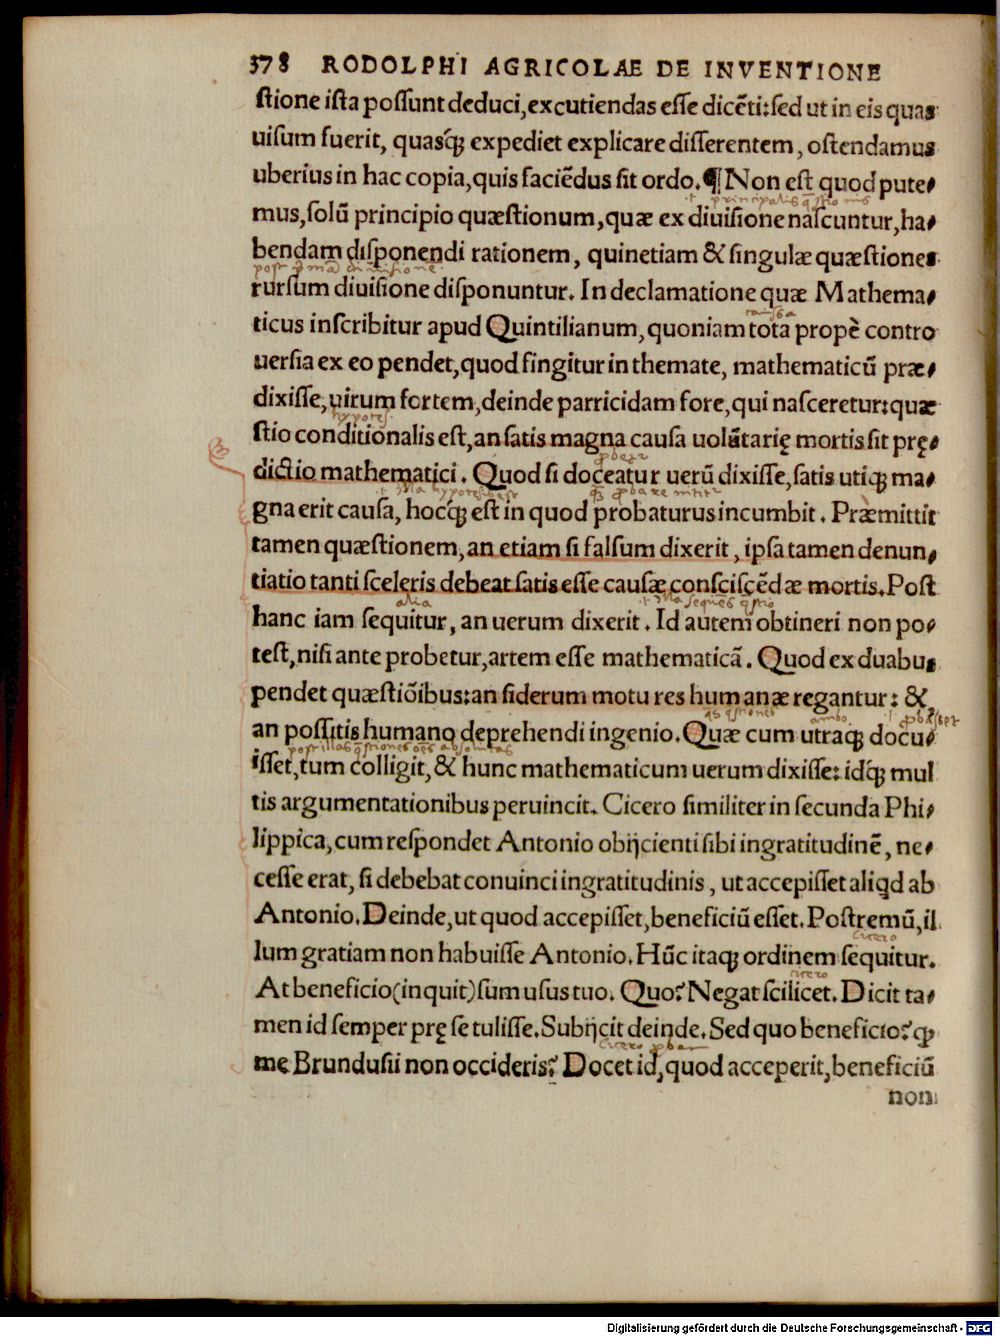 378 RODOLPHI AGRICOLAE DE INVENTIONE
ſtione iſta poſſunt deduci, excutiendas eſſe dicēti: ſed ut in eis quas
uiſum fuerit, quasq́ꝫ expediet explicare diſſerentem, oſtendamus
uberius in hac copia, quis faciēdus ſit ordo. ¶ Non eſt quod pute⸗
mus, ſolū principio quæſtionum, quæ ex diuiſione naſcuntur, ha⸗
bendam diſponendi rationem, quinetiam & ſingulæ quæſtiones
rurſum diuiſione diſponuntur. In declamatione quæ Mathema⸗
ticus inſcribitur apud Quintilianum, quoniam tota propè contro
uerſia ex eo pendet, quod fingitur in themate, mathematicū præ⸗
dixiſſe, uirum fortem, deinde parricidam fore, qui naſceretur: quæ
hypotes.
ſtio conditionalis eſt, an ſatis magna cauſa uolūtarię mortis ſit prę⸗
dictio mathematici. Quod ſi doceatur uerū dixiſſe, ſatis utiqꝫ ma⸗
gna erit cauſa, hocq́ꝫ eſt in quod probaturus incumbit. Præmittit
tamen quæſtionem, an etiam ſi falſum dixerit, ipſa tamen denun⸗
tiatio tanti ſceleris debeat ſatis eſſe cauſæ conſciſcēdæ mortis. Poſt
alia
hanc iam ſequitur, an uerum dixerit. Id autem obtineri non po⸗
teſt, niſi ante probetur, artem eſſe mathematicā. Quod ex duabus
pendet quæſtiōibus: an ſiderum motu res humanæ regantur: &
ambo
an poſſitis humano deprehendi ingenio. Quæ cum utraqꝫ docu⸗
iſſet, tum colligit, & hunc mathematicum uerum dixiſſe: idq́ꝫ mul
tis argumentationibus peruincit. Cicero ſimiliter in ſecunda Phi⸗
lippica, cum reſpondet Antonio obijcienti ſibi ingratitudinē, ne⸗
ceſſe erat, ſi debebat conuinci ingratitudinis, ut accepiſſet aliqd ab
Antonio. Deinde, ut quod accepiſſet, beneficiū eſſet. Poſtremū, il
lum gratiam non habuiſſe Antonio. Hūc itaqꝫ ordinem ſequitur.
cicero
At beneficio (inquit) ſum uſus tuo. Quo? Negat ſcilicet. Dicit ta⸗
men id ſemper prę ſe tuliſſe. Subijcit deinde. Sed quo beneficio? qꝫ
me Brunduſii non occideris? Docet id, quod acceperit, beneficiū
non
Digitalisierung gefördert durch die Deutsche Forschungsgemeinschaft - DFG